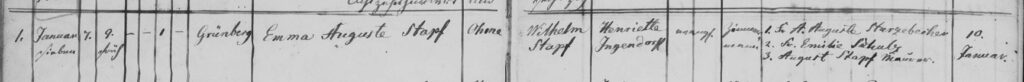 1. Januar 7. 9. – – 1 – Grünberg Emma Auguste Stapf Ohne Wilhelm Henriette evangl. Zimmer 1. Fr. A. Auguste 10.
sieben früh Stapf Ingendorff mann 2. Fr. Emilie Schulz Januar
3. August Stapf Maurer.